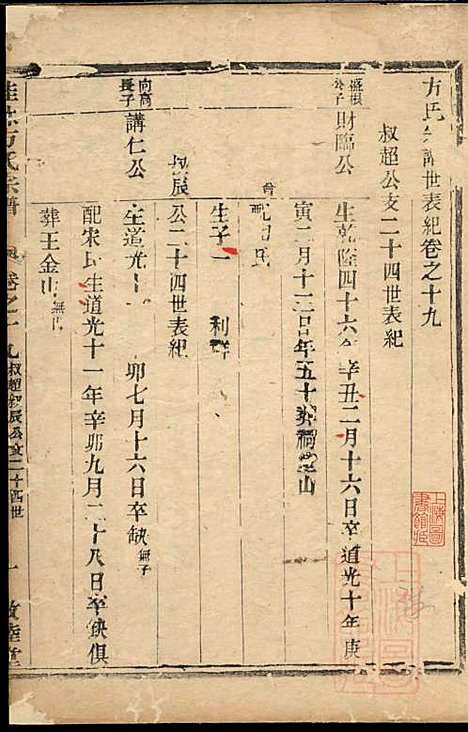 方氏宗譜世表紀卷之十九
叔超公支二十四世表紀
盛根公子
財臨公
生乾隆四十六年辛丑二月十六日卒道光十年庚
寅二月十二日年五十葬橋山
配 氏
生子一 利群
叔辰公二十四世表紀
向高長子
講仁公
生道光 卯七月十六日卒缺無子
配宋氏生道光十一年辛卯九月二十八日卒缺俱
葬王金山無出
方氏宗譜 卷之十九 叔超叔辰公支二十四世 一 敦睦堂
上海圖書館藏